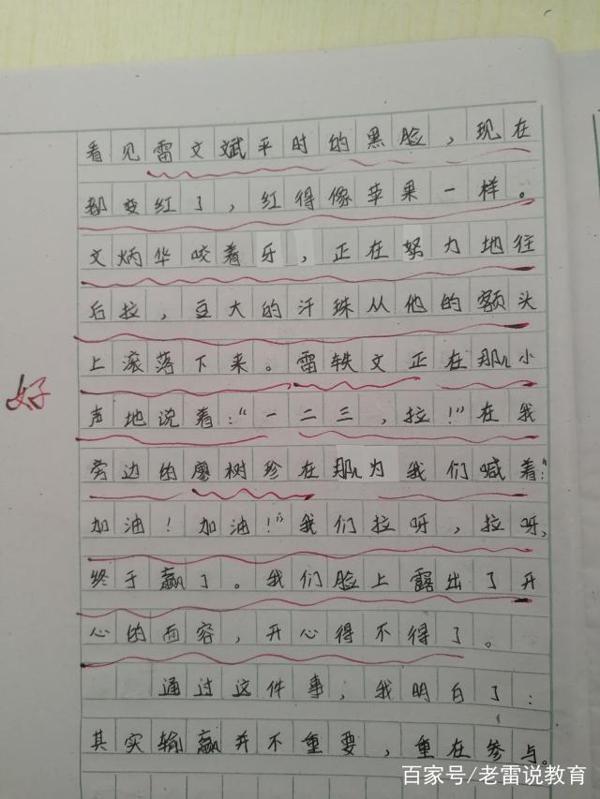 看见雷文斌平时的黑脸，现在
都变红了，红得像苹果一样。
文炳华咬着牙，正在努力地往
后拉，豆大的汗珠从他的额头
上滚落下来。雷轶文正在那儿小
声地说着：“一二三，拉！”在我
旁边的廖树珍在那儿为我们喊着：“
加油！加油！”我们拉呀，拉呀，
终于赢了。我们脸上露出了开
心的面容，开心得不得了。
通过这件事，我明白了：
其实输赢并不重要，重在参与。
好
百家号/老雷说教育